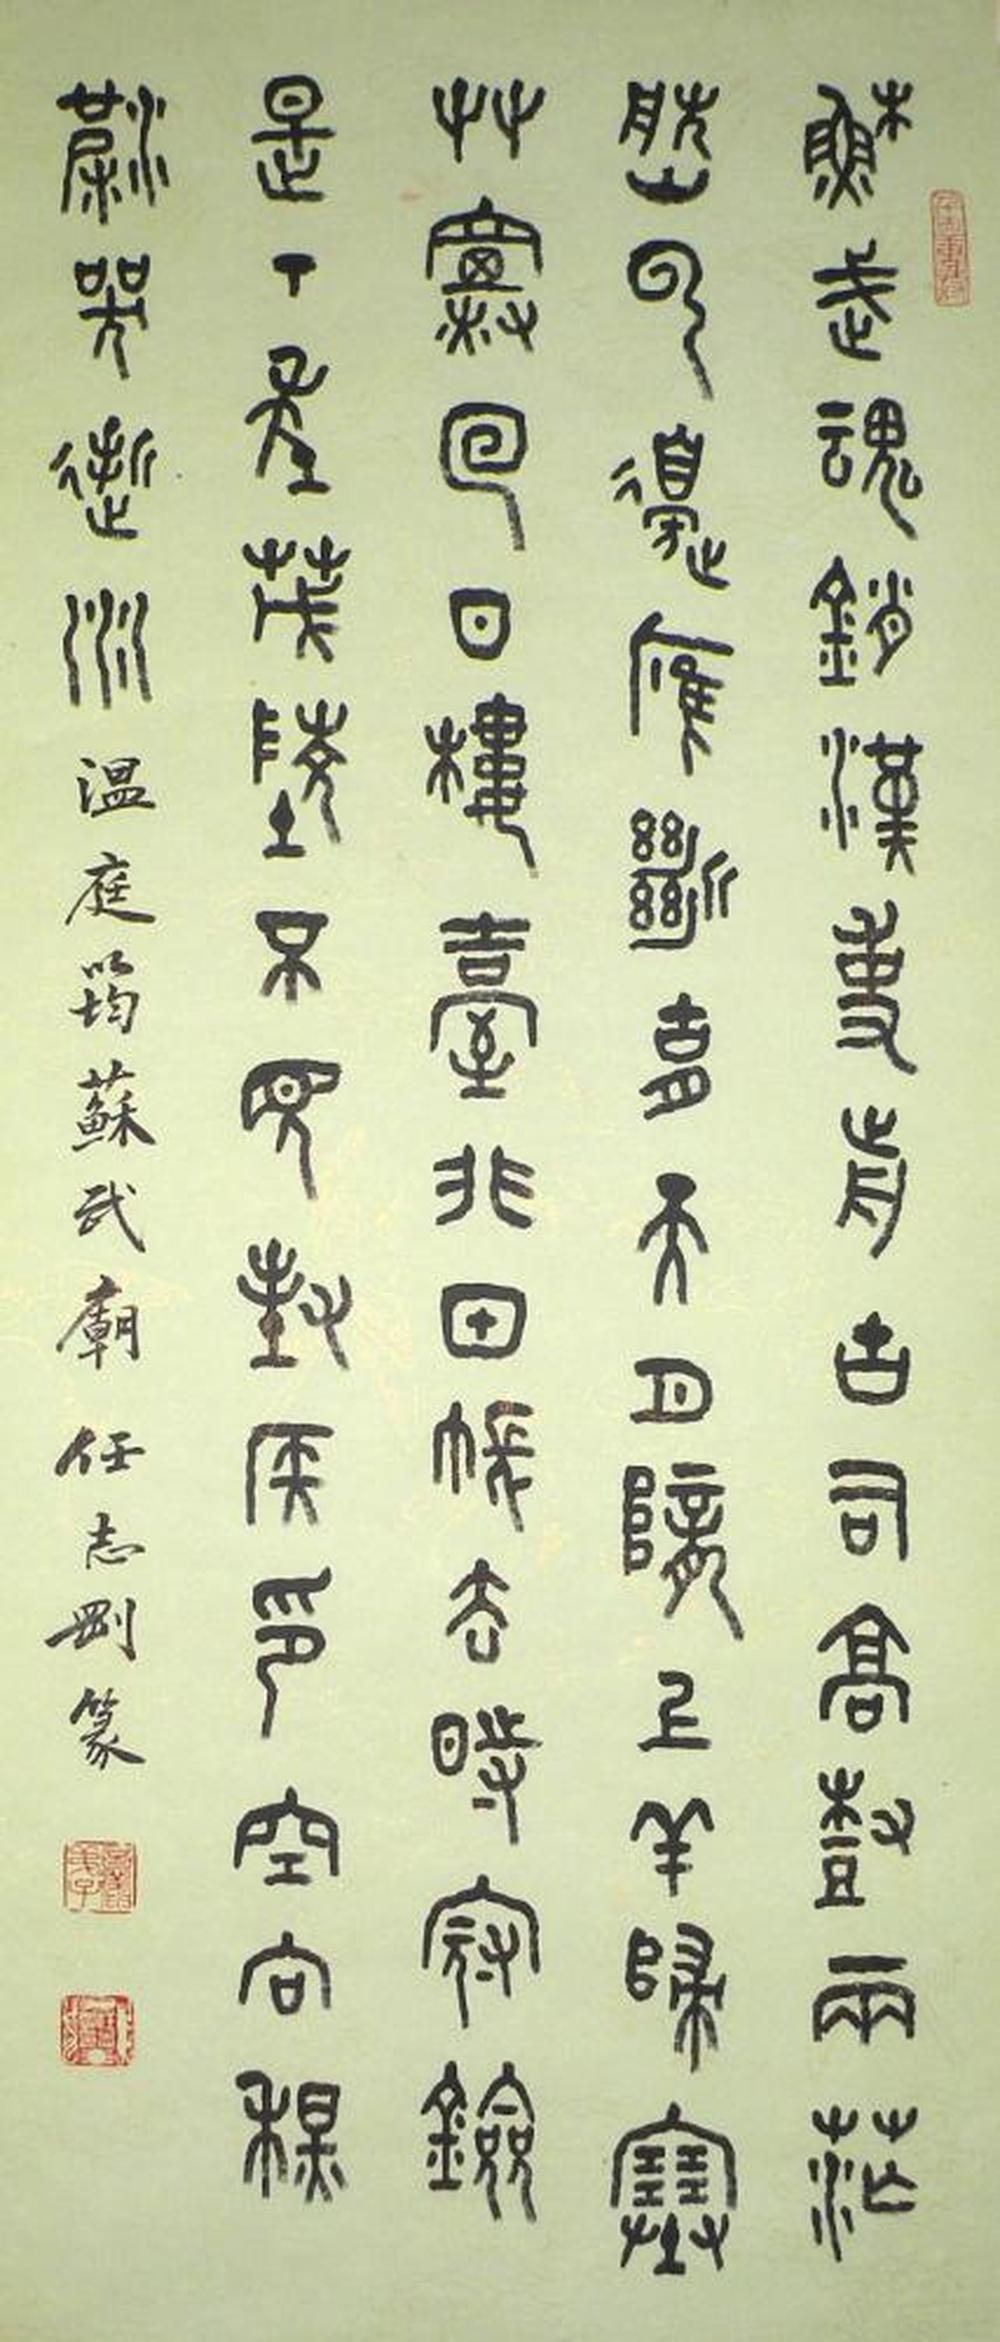 穌武魂銷漢使前古司高尌兩茫
然云邊雁斷胡天月隴上羊歸塞
草煙回日樓臺非甲帳去時冠劍
是丁年茂陵不見封侯印空向秋
波哭逝川 溫庭筠蘇武廟 任志剛篆